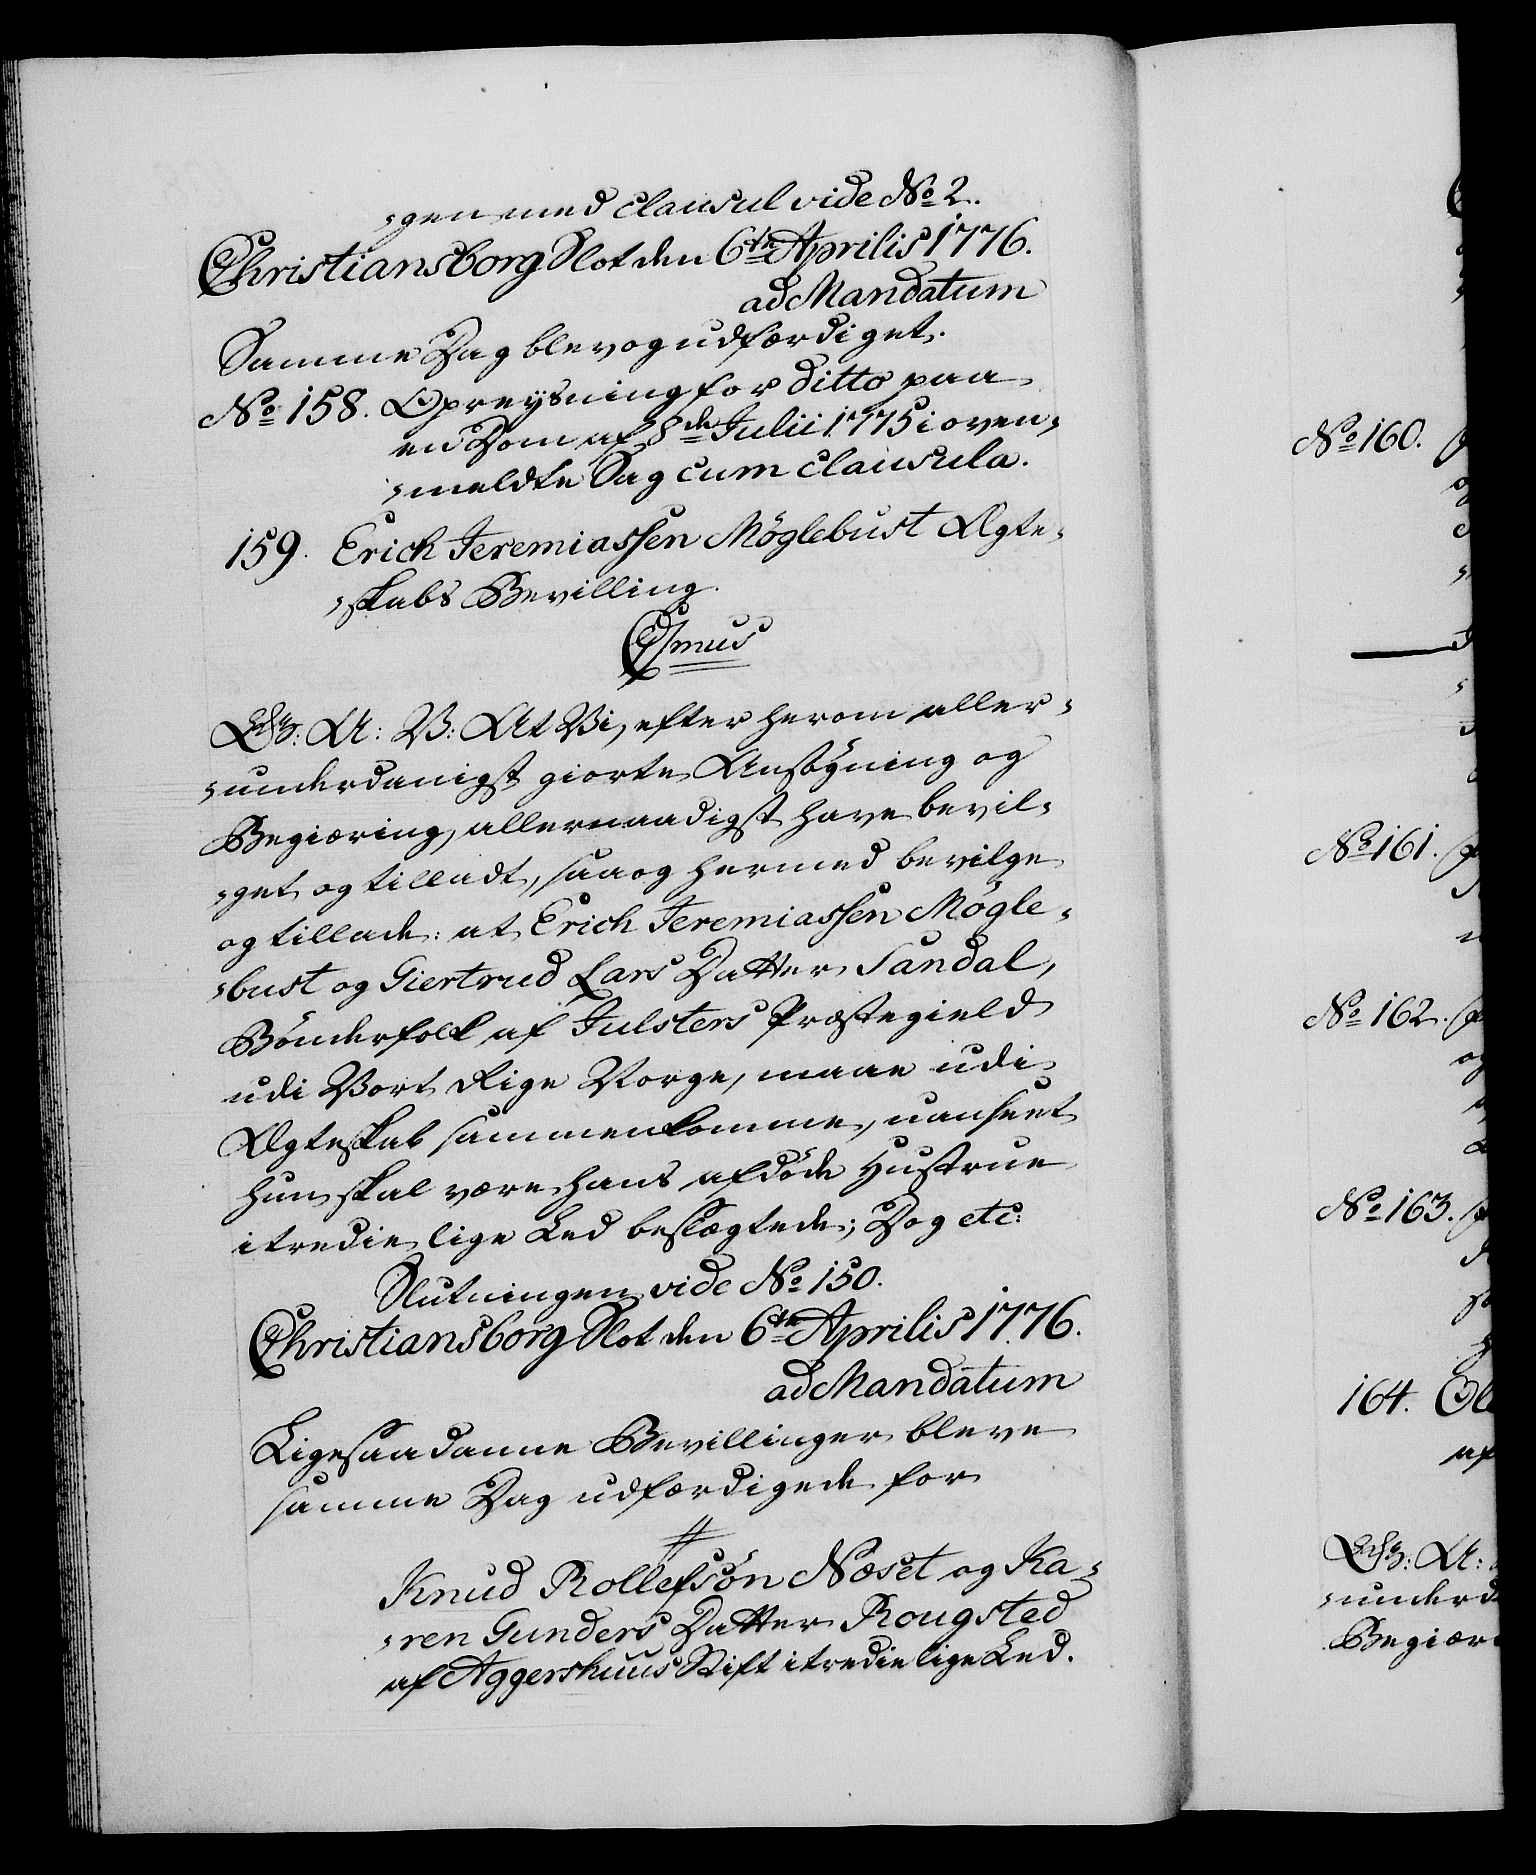 -gen med clausul vide No 2.
Christiansborg Slot den 6te Aprilis 1776.
ad Mandatum
Samme Dag blev og udfærdiget.
No 158. Opreysning for ditto paa
en Dom af 8de Julii 1775 i oven-
-meldte Sag cum clausula.
159. Erich Jeremiassen Möglebust Ægte-
-skabs Bevilling.
C7mus
G: A: V: At Vi, efter herom aller-
-underdanigst giorte Ansögning og
Begiæring, allernaadigst have bevil-
-get og tilladt, saa og hermed bevilge
og tillade: at Erich Jeremiassen Mögle-
-bust og Giertrud Lars Datter Sandal,
Bönderfolk af Julsters Præstegield
udi Vort Rige Norge, maae udi
Ægteskab sammenkomme, uanseet
hun skal være hans afdöde Hustrue
i tredie lige Led beslægtede; Dog etc:
Slutningen vide No 150.
Christiansborg Slot den 6te Aprilis 1776.
ad Mandatum
Ligesaadanne Bevillinger bleve
samme Dag udfærdigede for
#
Knud Rollefsön Næset og Ka-
-ren Gunders Datter Rougsted
af Aggershuus Stift i tredie lige Led.
No 160.
No 161.
No 162.
No 163.
164. Ol
af
G: A:
-underd
Begiær